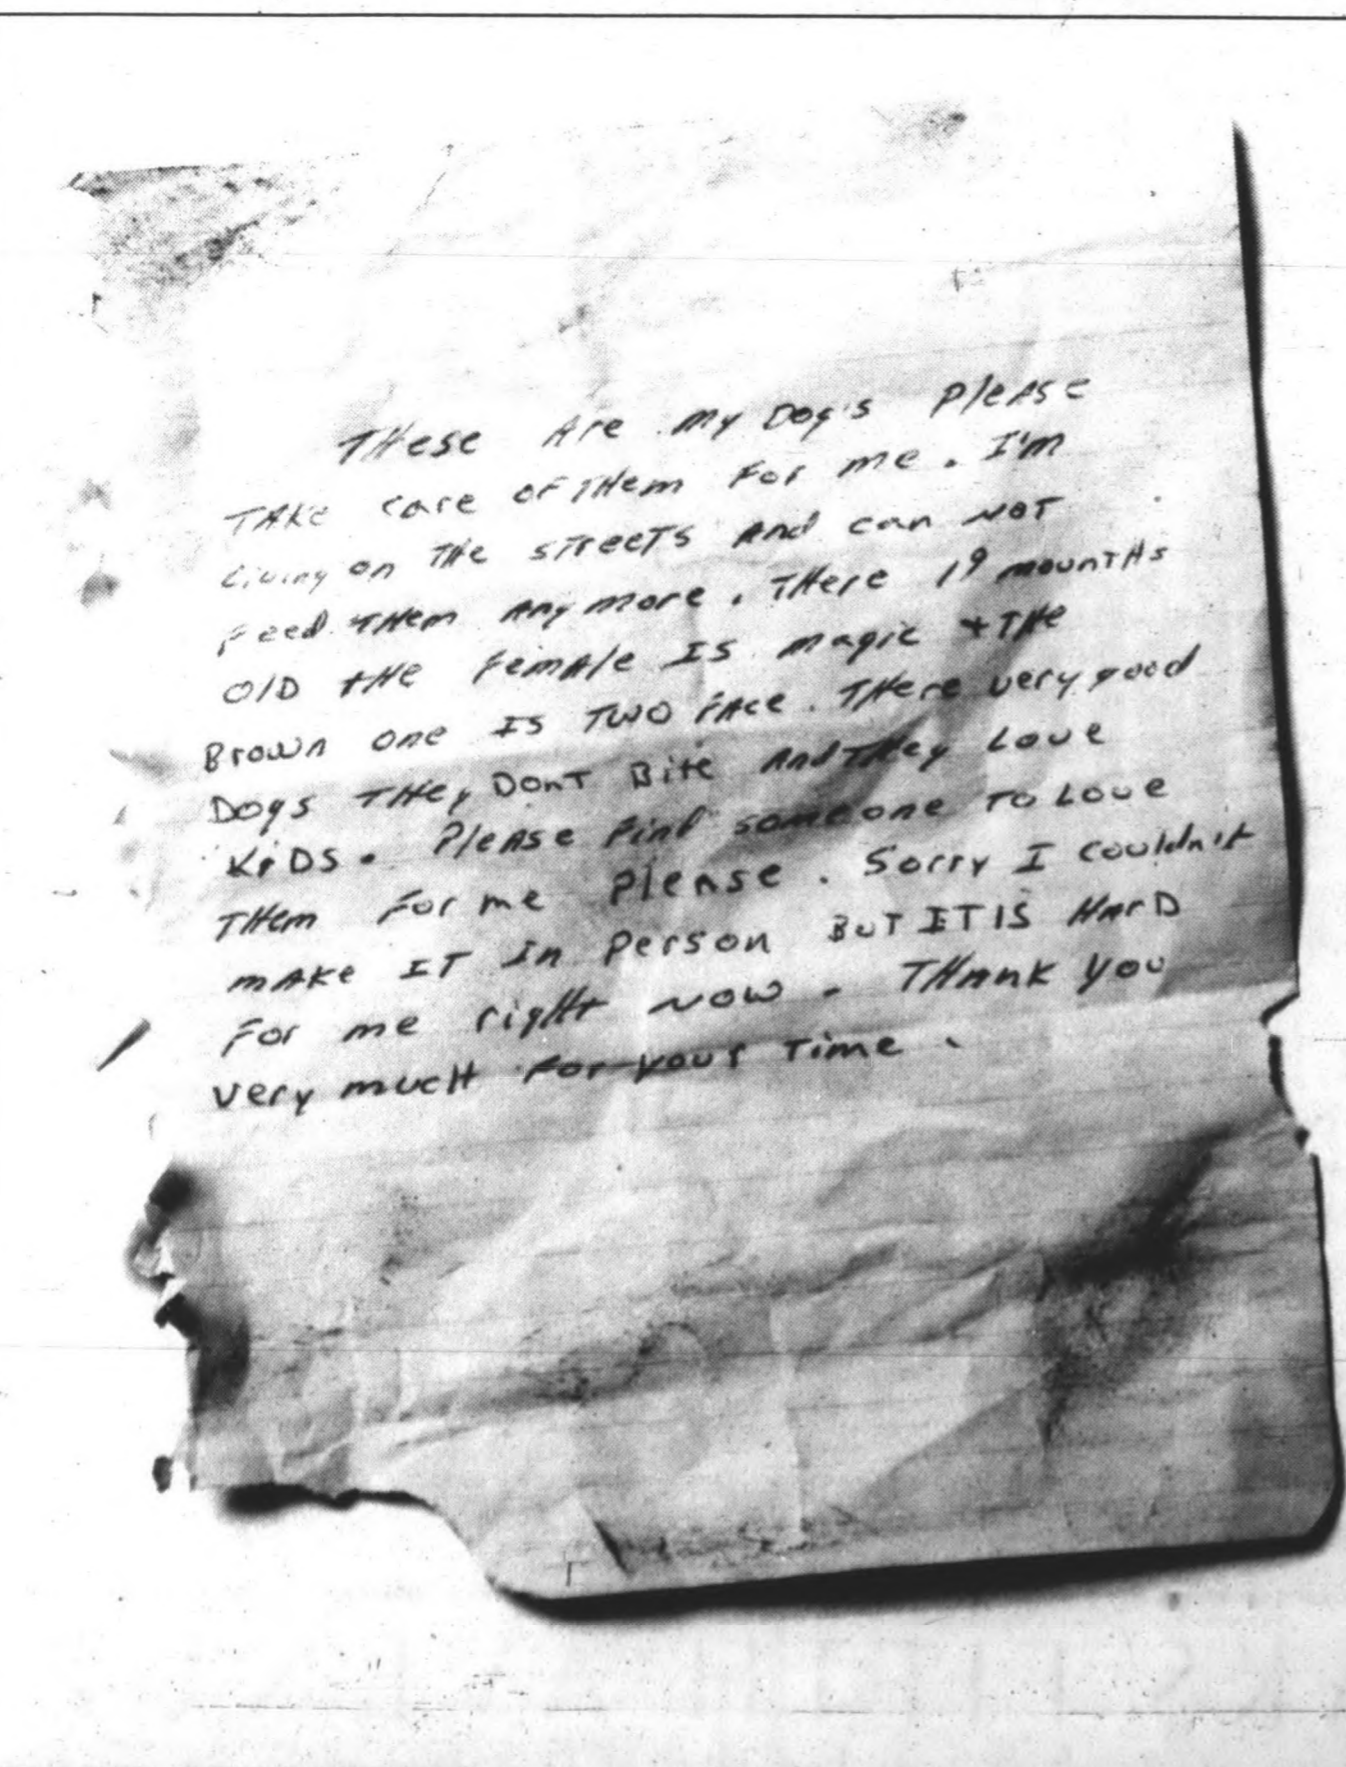 THese Are my Dog's Please
TAKe care of THem For me. I'm
Living on THe streets And can NOT
Feed THem Any more. THere 19 mounTHs
OlD tHe FemAle Is magic + THe
Brown one Is Two FAce. THere very good
Dogs THey DonT Bite And THey Love
KiDS. PleAse Find someone To Love
THem For me Please. Sorry I couldn't
mAKe IT In Person BuT IT IS HArD
For me rigHt NOW. THAnk You
very mucH For your Time.